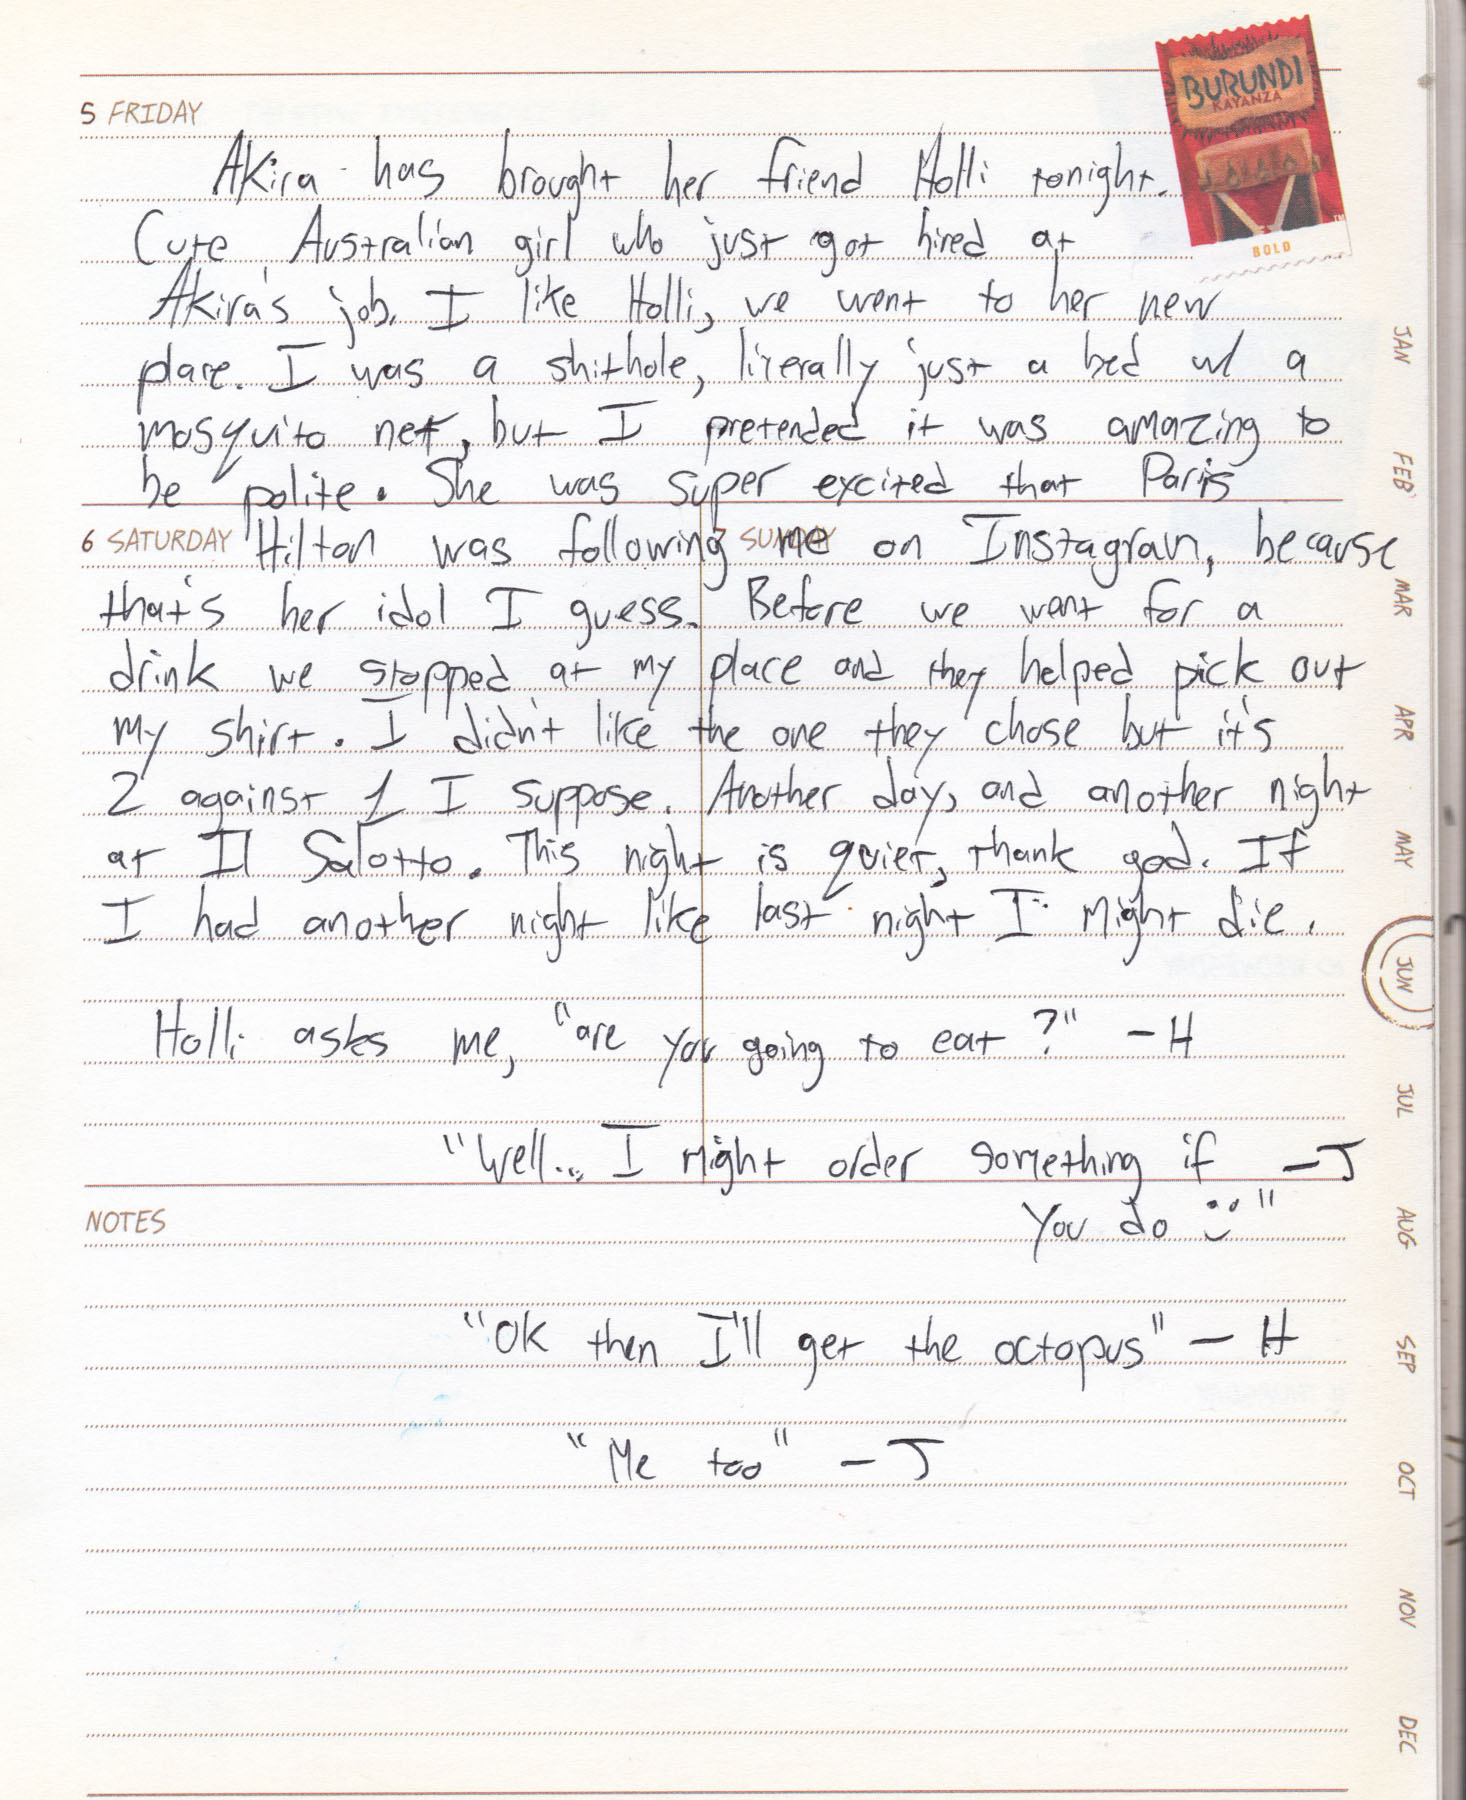 BURUNDI
KAYANZA
TM
BOLD
5 FRIDAY
Akira has brought her friend Holli tonight.
Cute Australian girl who just got hired at
Akira's job. I like Holli, we went to her new
place. I was a shithole, literally just a bed w/ a
mosquito net, but I pretended it was amazing to
be polite. She was super excited that Paris
6 SATURDAY
7 SUNDAY
Hilton was following me on Instagram, because
that's her idol I guess. Before we went for a
drink we stopped at my place and they helped pick out
my shirt. I didn't like the one they chose but it's
2 against 1 I suppose. Another day, and another night
at Il Salotto. This night is quiet, thank god. If
I had another night like last night I might die.
Holli asks me, "are you going to eat?" - H
"Well... I might order something if - J
you do :)"
NOTES
"Ok then I'll get the octopus" - H
"Me too" - J
JAN
FEB
MAR
APR
MAY
JUN
JUL
AUG
SEP
OCT
NOV
DEC